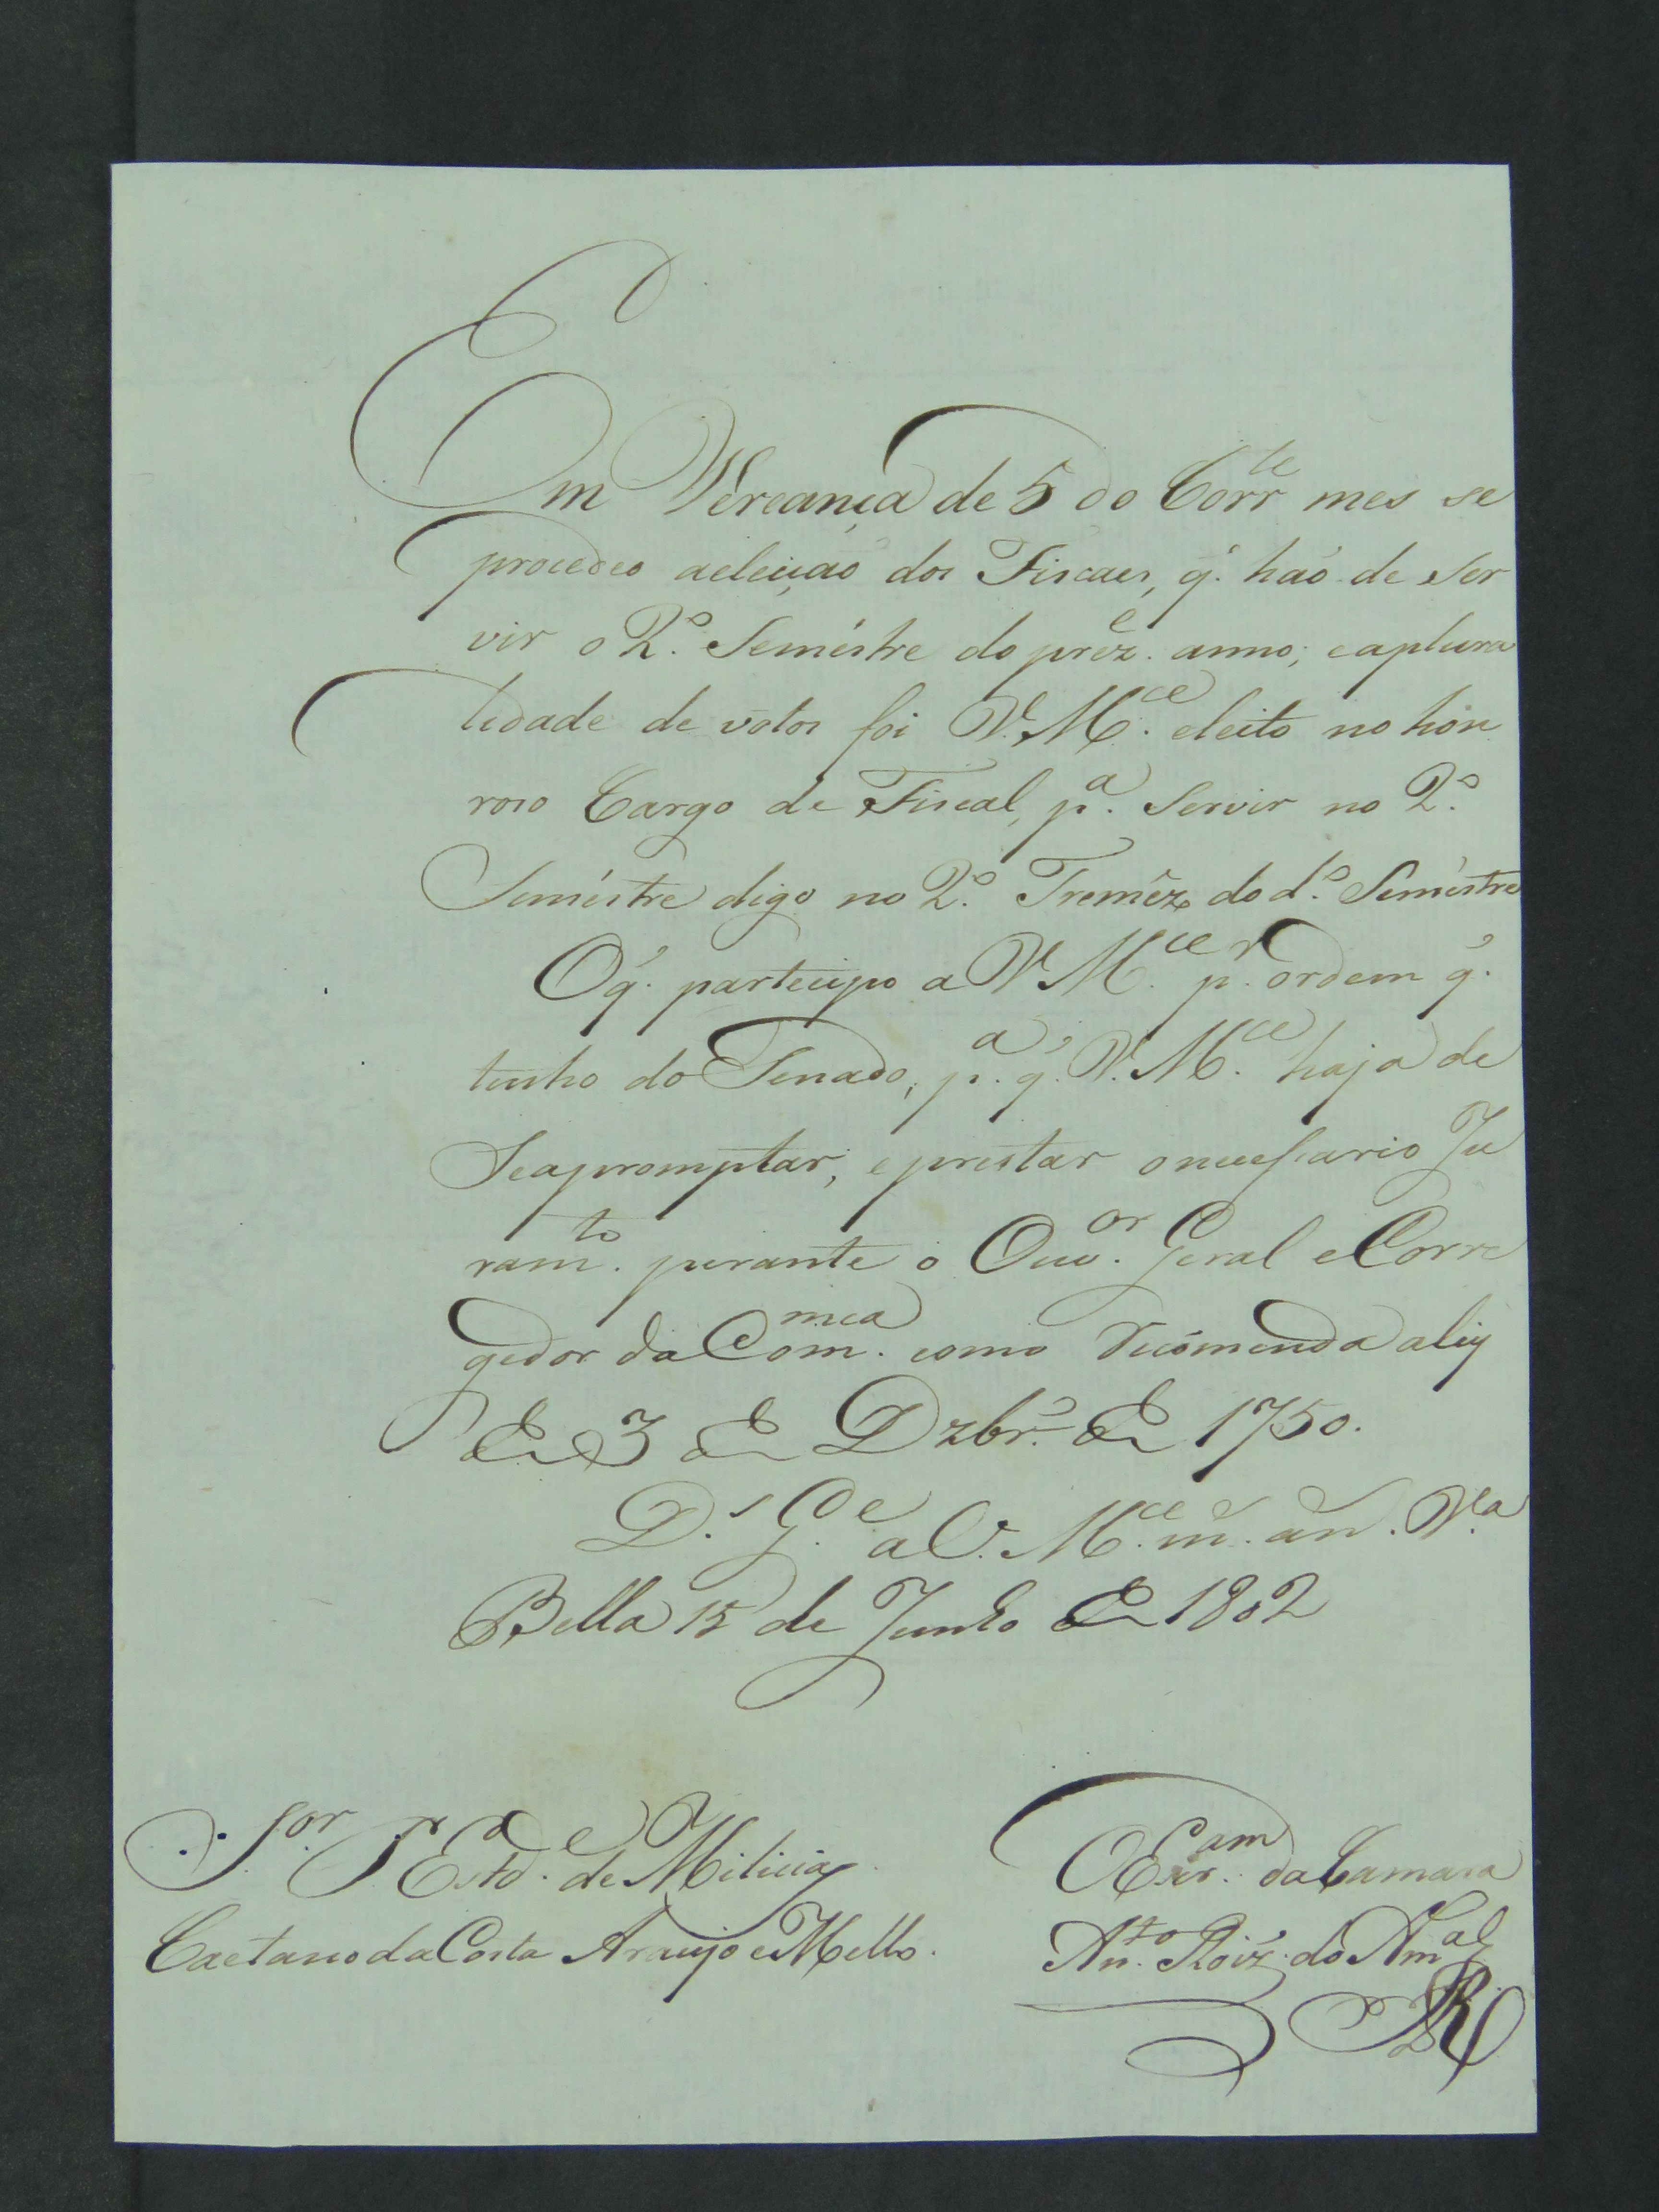 Em Vereança de 5 do Corr.te mes se
procedeo aeleição dos Fiscaes, q.' haõ de ser
vir o 2.º Seméstre do prez.e anno; eaplura
lidade de votos foi V. M.ce eleito no hon
roso Cargo de Fiscal, p.a servir no 2.º
Seméstre digo no 2.º Tremêz do d.º Seméstre
O q.' partecipo a V. M.ce p.r ordem q.'
tenho do Senado, p.a q.' V. M.ce haja de
Seapromptar, eprestar onecessario Ju
ram.to perante o Ouv.or Geral eCorre
gedor da Com.ca como recomenda aley
de 3 de Dzbr.º de 1750.
D.s G.de a V. M.ce m.s an.s V.a
Bella 15 de Junho de 1802
S.or de Milicias
Caetano da Costa Araujo eMello.
OEscr.am daCamara
An.to Roiz' do Am.al